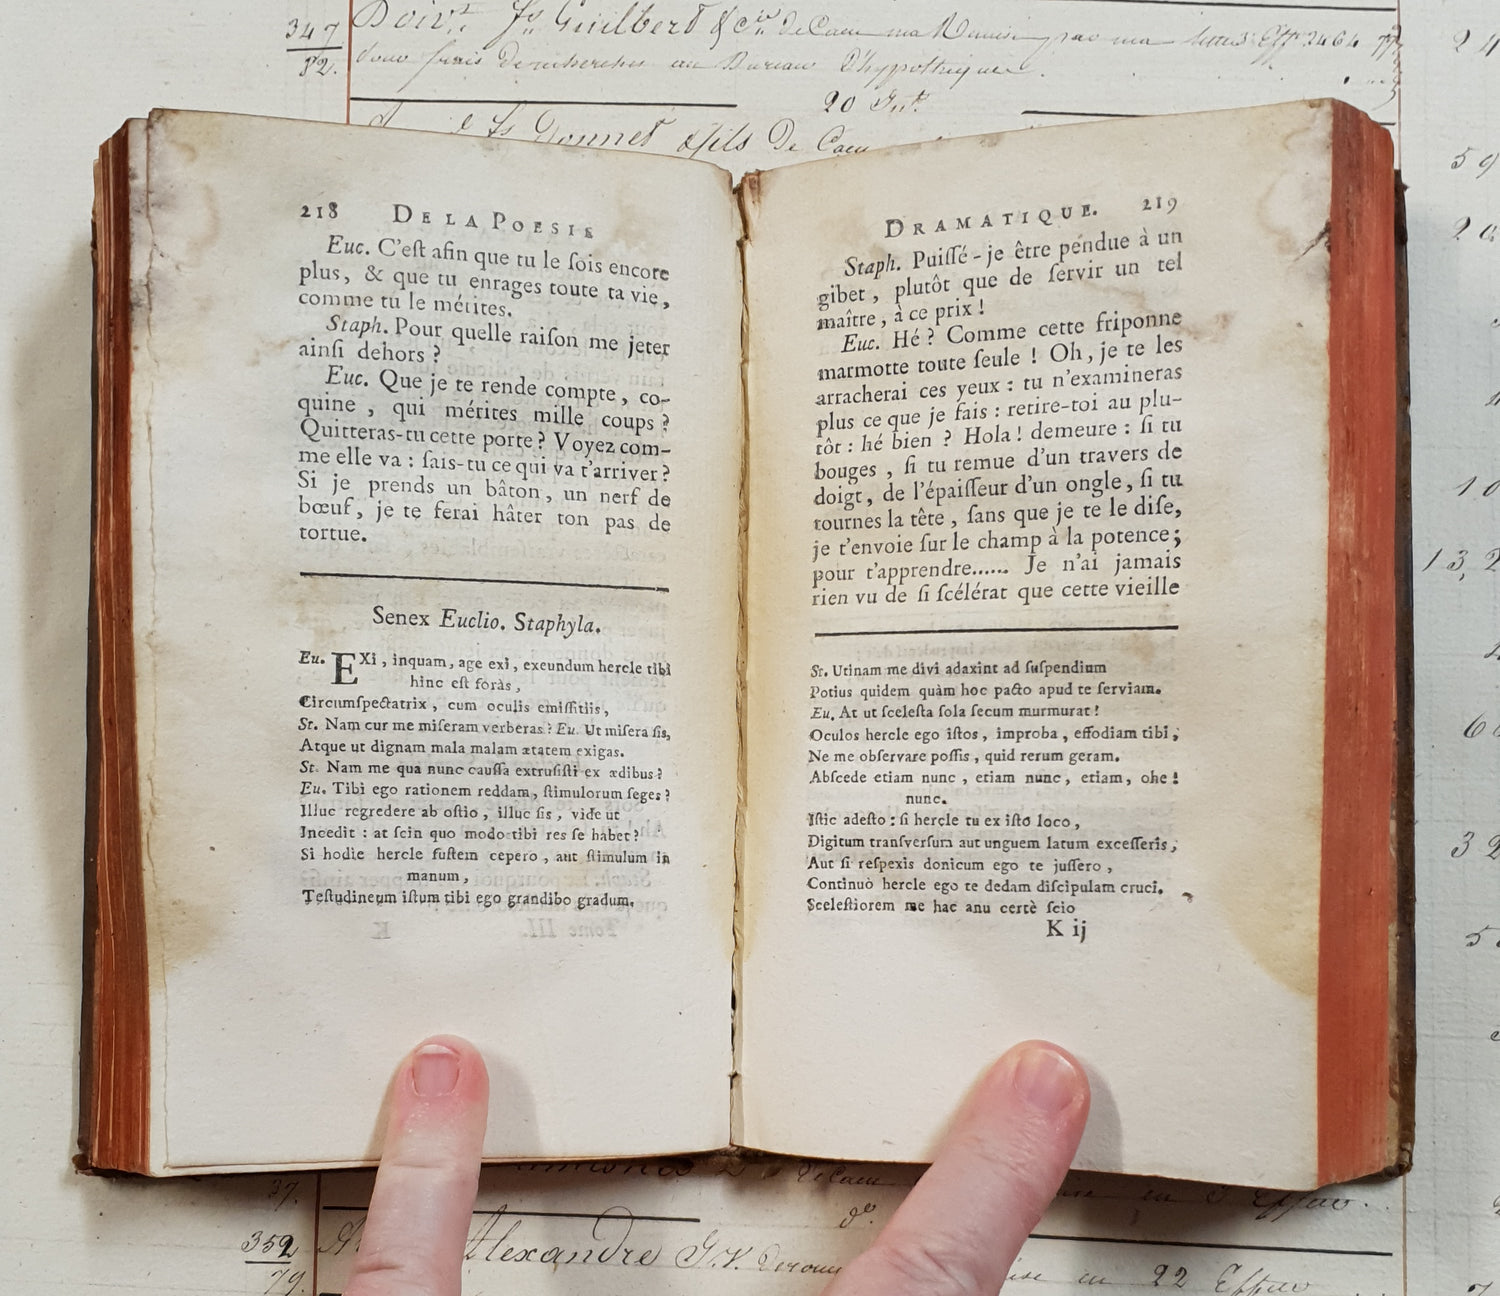 347
52.
Doiv.t Js Guilbert & Cie de Caen ma Remise par ma lettre Eff. 2464
pour frais de recherches au Bureau d'hypothèques.
20
Donnet & fils De Caen
218 DE LA POESIE
Euc. C'eſt afin que tu le ſois encore
plus, & que tu enrages toute ta vie,
comme tu le mérites.
Staph. Pour quelle raiſon me jeter
ainſi dehors ?
Euc. Que je te rende compte, co-
quine , qui mérites mille coups ?
Quitteras-tu cette porte ? Voyez com-
me elle va : ſais-tu ce qui va t'arriver ?
Si je prends un bâton, un nerf de
bœuf, je te ferai hâter ton pas de
tortue.
Senex Euclio. Staphyla.
Eu. EXI, inquam, age exi, exeundum hercle tibi
hinc eſt foràs,
Circumſpectatrix, cum oculis emiſſitiis,
St. Nam cur me miſeram verberas? Eu. Ut miſera ſis,
Atque ut dignam mala malam ætatem exigas.
St. Nam me qua nunc cauſſa extruſiſti ex ædibus?
Eu. Tibi ego rationem reddam, ſtimulorum ſeges?
Illuc regredere ab oſtio, illuc ſis, vide ut
Incedit : at ſcin quo modo tibi res ſe habet?
Si hodie hercle fuſtem cepero, aut ſtimulum in
manum,
Teſtudineum iſtum tibi ego grandibo gradum.
DRAMATIQUE. 219
Staph. Puiſſé-je être pendue à un
gibet, plutôt que de ſervir un tel
maître, à ce prix !
Euc. Hé ? Comme cette friponne
marmotte toute ſeule ! Oh, je te les
arracherai ces yeux : tu n'examineras
plus ce que je fais : retire-toi au plu-
tôt : hé bien ? Hola ! demeure : ſi tu
bouges , ſi tu remue d'un travers de
doigt, de l'épaiſſeur d'un ongle, ſi tu
tournes la tête, ſans que je te le diſe,
je t'envoie ſur le champ à la potence ;
pour t'apprendre...... Je n'ai jamais
rien vu de ſi ſcélérat que cette vieille
St. Utinam me divi adaxint ad ſuſpendium
Potius quidem quàm hoc pacto apud te ſerviam.
Eu. At ut ſceleſta ſola ſecum murmurat !
Oculos hercle ego iſtos, improba, effodiam tibi,
Ne me obſervare poſſis, quid rerum geram.
Abſcede etiam nunc, etiam nunc, etiam, ohe !
nunc.
Iſtic adeſto : ſi hercle tu ex iſto loco,
Digitum tranſverſum aut unguem latum exceſſeris,
Aut ſi reſpexis donicum ego te juſſero,
Continuò hercle ego te dedam diſcipulam cruci.
Sceleſtiorem me hac anu certè ſcio
K ij
37.
352
79.
Alexandre
en 22